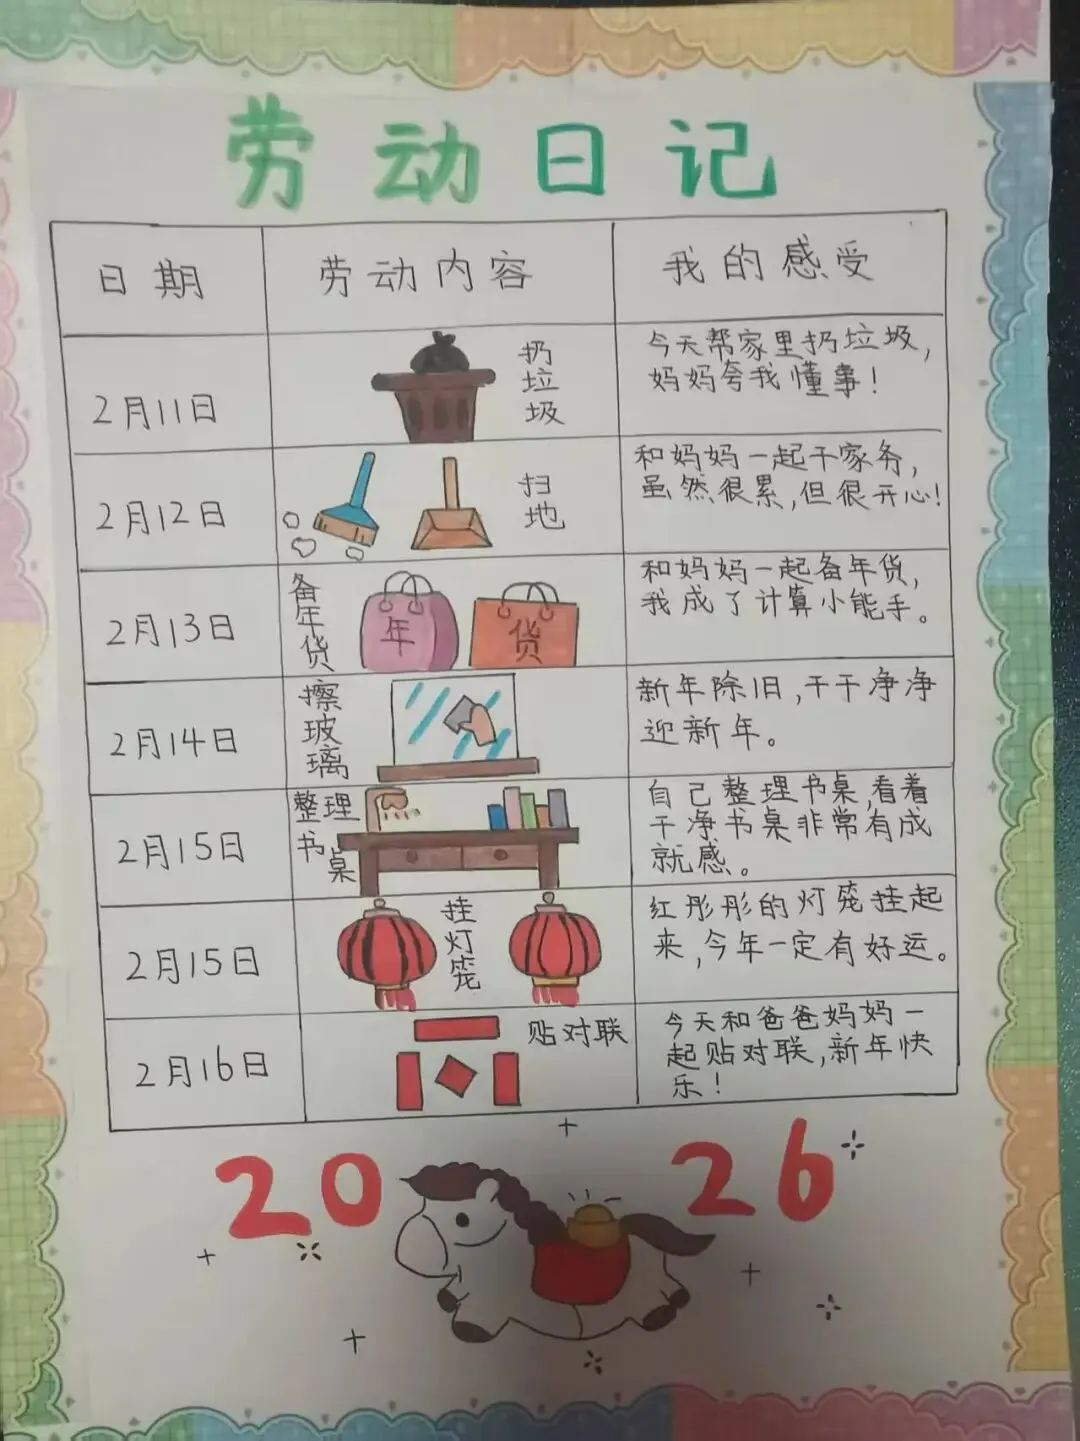 劳动日记
日期 劳动内容 我的感受
2月11日
扔
垃
圾
今天帮家里扔垃圾,
妈妈夸我懂事!
2月12日
扫
地
和妈妈一起干家务,
虽然很累,但很开心!
2月13日
备
年
货
年
货
和妈妈一起备年货,
我成了计算小能手。
2月14日
擦
玻
璃
新年除旧,干干净净
迎新年。
2月15日
整理
书
桌
自己整理书桌,看着
干净书桌非常有成
就感。
2月15日
挂
灯
笼
红彤彤的灯笼挂起
来,今年一定有好运。
2月16日
贴对联
今天和爸爸妈妈一
起贴对联,新年快
乐!
2026